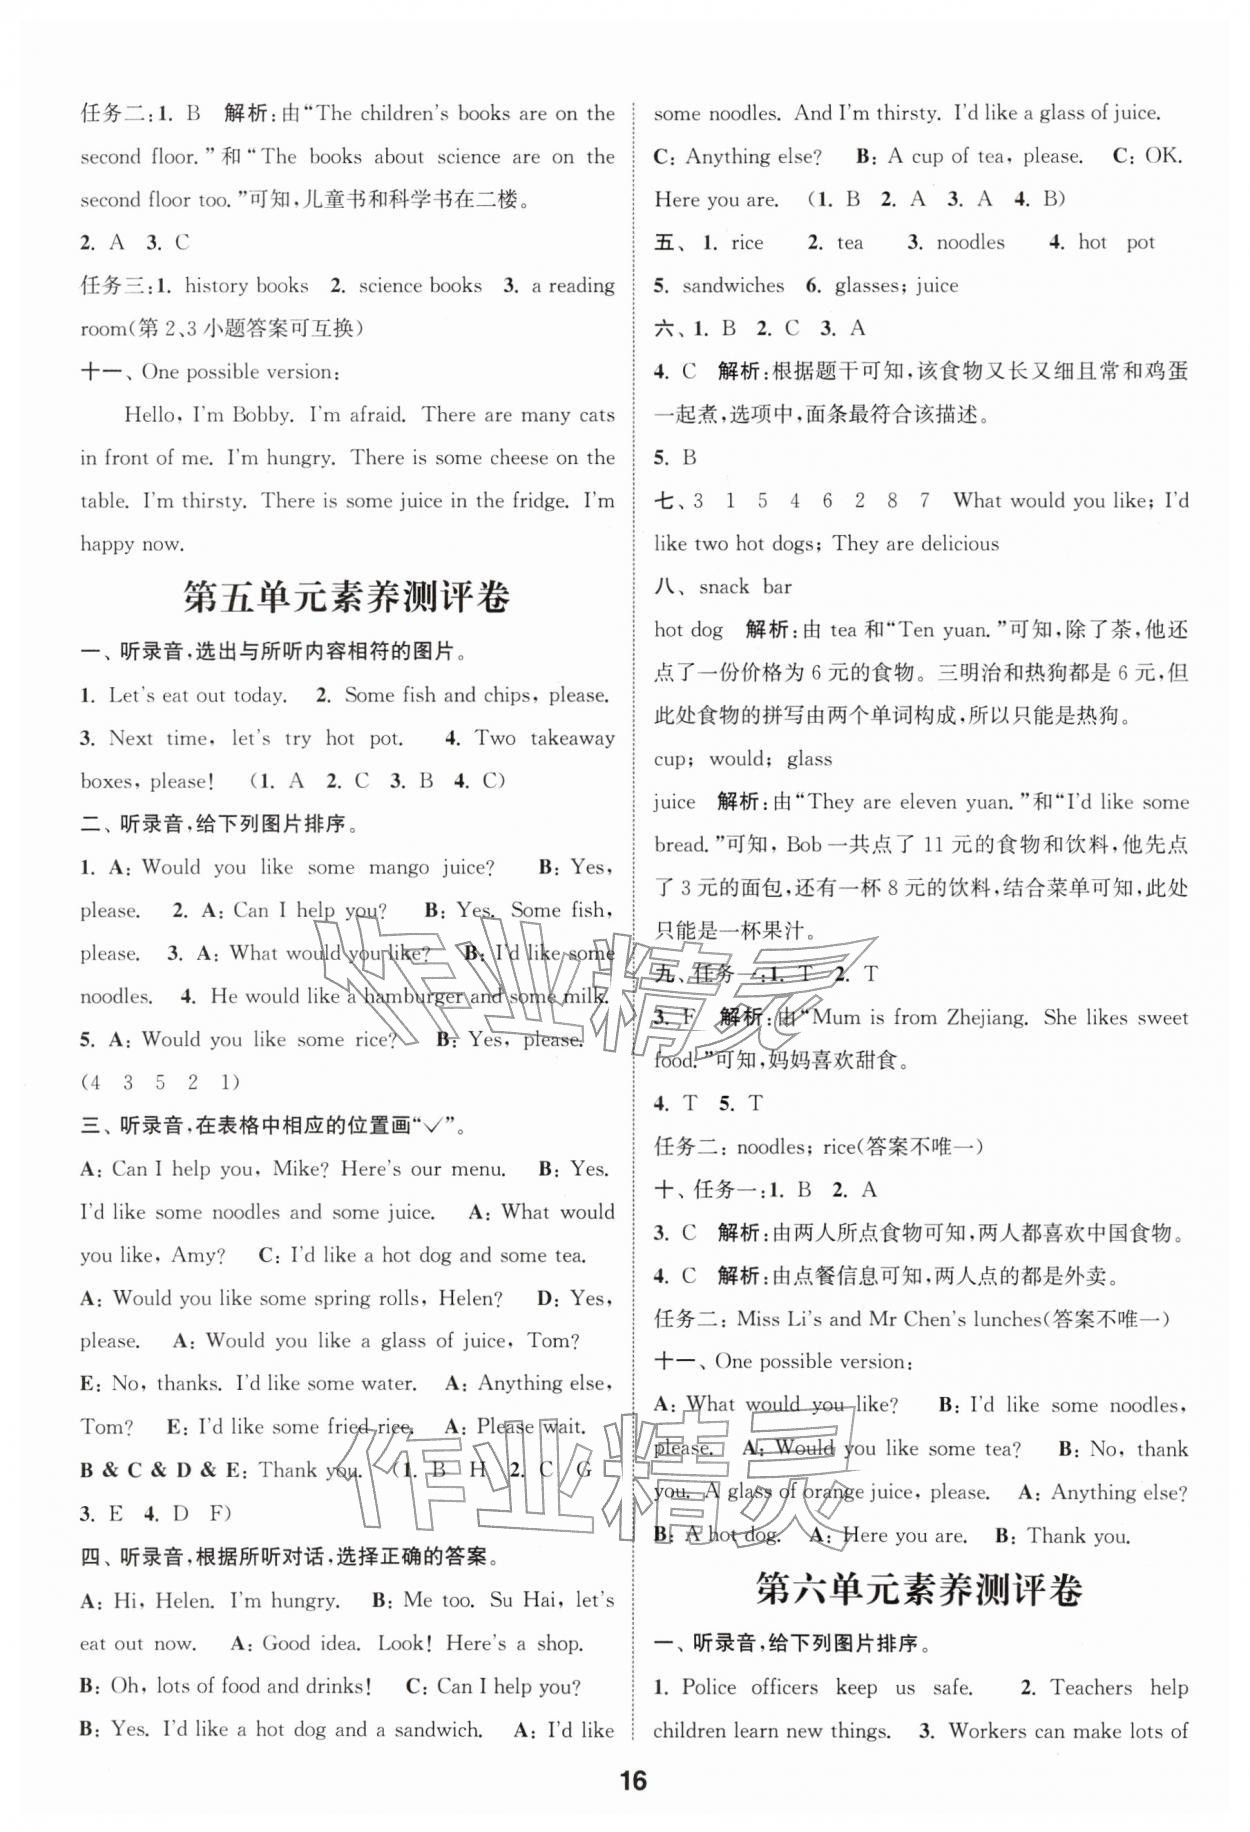 任务二:1. B 解析:由“The children's books are on the
second floor.”和“The books about science are on the
second floor too.”可知,儿童书和科学书在二楼。
2. A 3. C
任务三:1. history books 2. science books 3. a reading
room(第2、3小题答案可互换)
十一、One possible version:
Hello, I'm Bobby. I'm afraid. There are many cats
in front of me. I'm hungry. There is some cheese on the
table. I'm thirsty. There is some juice in the fridge. I'm
happy now.
第五单元素养测评卷
一、听录音,选出与所听内容相符的图片。
1. Let's eat out today. 2. Some fish and chips, please.
3. Next time, let's try hot pot. 4. Two takeaway
boxes, please! (1. A 2. C 3. B 4. C)
二、听录音,给下列图片排序。
1. A: Would you like some mango juice? B: Yes,
please. 2. A: Can I help you? B: Yes. Some fish,
please. 3. A: What would you like? B: I'd like some
noodles. 4. He would like a hamburger and some milk.
5. A: Would you like some rice? B: Yes, please.
(4 3 5 2 1)
三、听录音,在表格中相应的位置画“✓”。
A: Can I help you, Mike? Here's our menu. B: Yes.
I'd like some noodles and some juice. A: What would
you like, Amy? C: I'd like a hot dog and some tea.
A: Would you like some spring rolls, Helen? D: Yes,
please. A: Would you like a glass of juice, Tom?
E: No, thanks. I'd like some water. A: Anything else,
Tom? E: I'd like some fried rice. A: Please wait.
B & C & D & E: Thank you. (1. B H 2. C G
3. E 4. D F)
四、听录音,根据所听对话,选择正确的答案。
A: Hi, Helen. I'm hungry. B: Me too. Su Hai, let's
eat out now. A: Good idea. Look! Here's a shop.
B: Oh, lots of food and drinks! C: Can I help you?
B: Yes. I'd like a hot dog and a sandwich. A: I'd like
some noodles. And I'm thirsty. I'd like a glass of juice.
C: Anything else? B: A cup of tea, please. C: OK.
Here you are. (1. B 2. A 3. A 4. B)
五、1. rice 2. tea 3. noodles 4. hot pot
5. sandwiches 6. glasses; juice
六、1. B 2. C 3. A
4. C 解析:根据题干可知,该食物又长又细且常和鸡蛋
一起煮,选项中,面条最符合该描述。
5. B
七、3 1 5 4 6 2 8 7 What would you like; I'd
like two hot dogs; They are delicious
八、snack bar
hot dog 解析:由 tea 和“Ten yuan.”可知,除了茶,他还
点了一份价格为 6 元的食物。三明治和热狗都是 6 元,但
此处食物的拼写由两个单词构成,所以只能是热狗。
cup; would; glass
juice 解析:由“They are eleven yuan.”和“I'd like some
bread.”可知,Bob 一共点了 11 元的食物和饮料,他先点
了 3 元的面包,还有一杯 8 元的饮料,结合菜单可知,此处
只能是一杯果汁。
九、任务一:1. T 2. T
3. F 解析:由“Mum is from Zhejiang. She likes sweet
food.”可知,妈妈喜欢甜食。
4. T 5. T
任务二: noodles; rice(答案不唯一)
十、任务一:1. B 2. A
3. C 解析:由两人所点食物可知,两人都喜欢中国食物。
4. C 解析:由点餐信息可知,两人点的都是外卖。
任务二: Miss Li's and Mr Chen's lunches(答案不唯一)
十一、One possible version:
A: What would you like? B: I'd like some noodles,
please. A: Would you like some tea? B: No, thank
you. A glass of orange juice, please. A: Anything else?
B: A hot dog. A: Here you are. B: Thank you.
第六单元素养测评卷
一、听录音,给下列图片排序。
1. Police officers keep us safe. 2. Teachers help
children learn new things. 3. Workers can make lots of
16
作业精灵
作业精灵